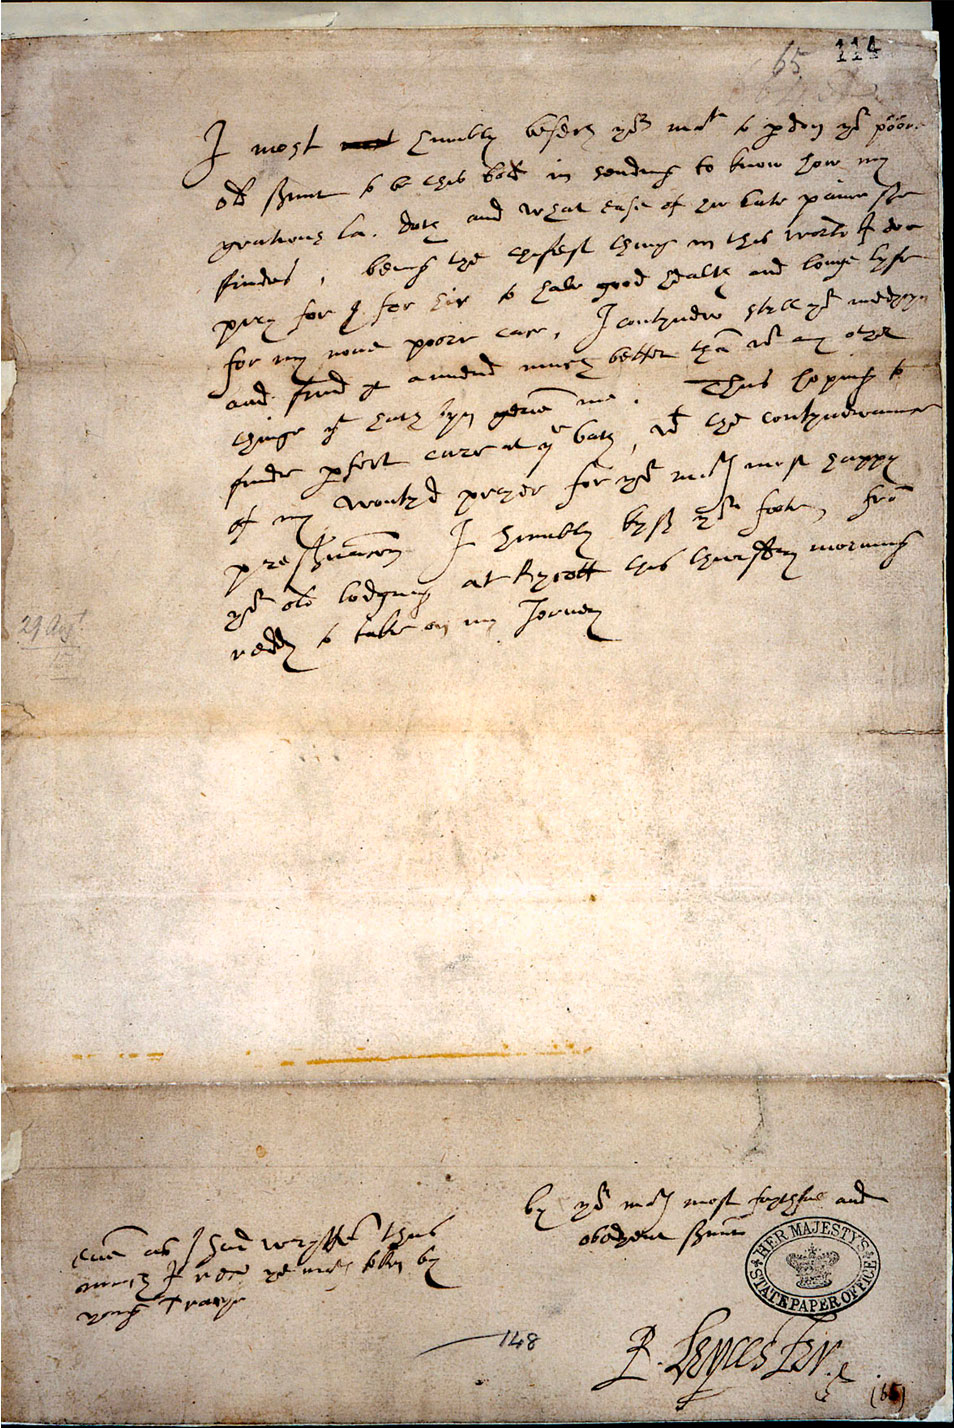 65 114
I most humbly besech yor matie to pdon yor poore
old svunt to be this bold in sending to know how my
gratious la. doth and what ease of her late paine she
findes, being the chefest thing in this world I doe
prey for & for hir to have good health and longe lyfe
for my none poore case, I contyndew styll yor medycyn
and fynd yt amend much better than wt any other
thinge yt hath byn geven me. Thus hoping to
finde pfect cure at ye bath, wt the contyndewance
of my wontyd preyer for yor mats most happy
preservacon I humbly kyss yor foote, from
yor old lodging at Rycott this thursday morning
reddy to take on my Jorney
29 Augt.
by yor mats most faythfull and
obedyent svunt
HER MAJESTY'S STATE PAPER OFFICE
even as I had wrytten thus
much I rece yor mats token by
yong Tracye
148
R. Leycester
(65)